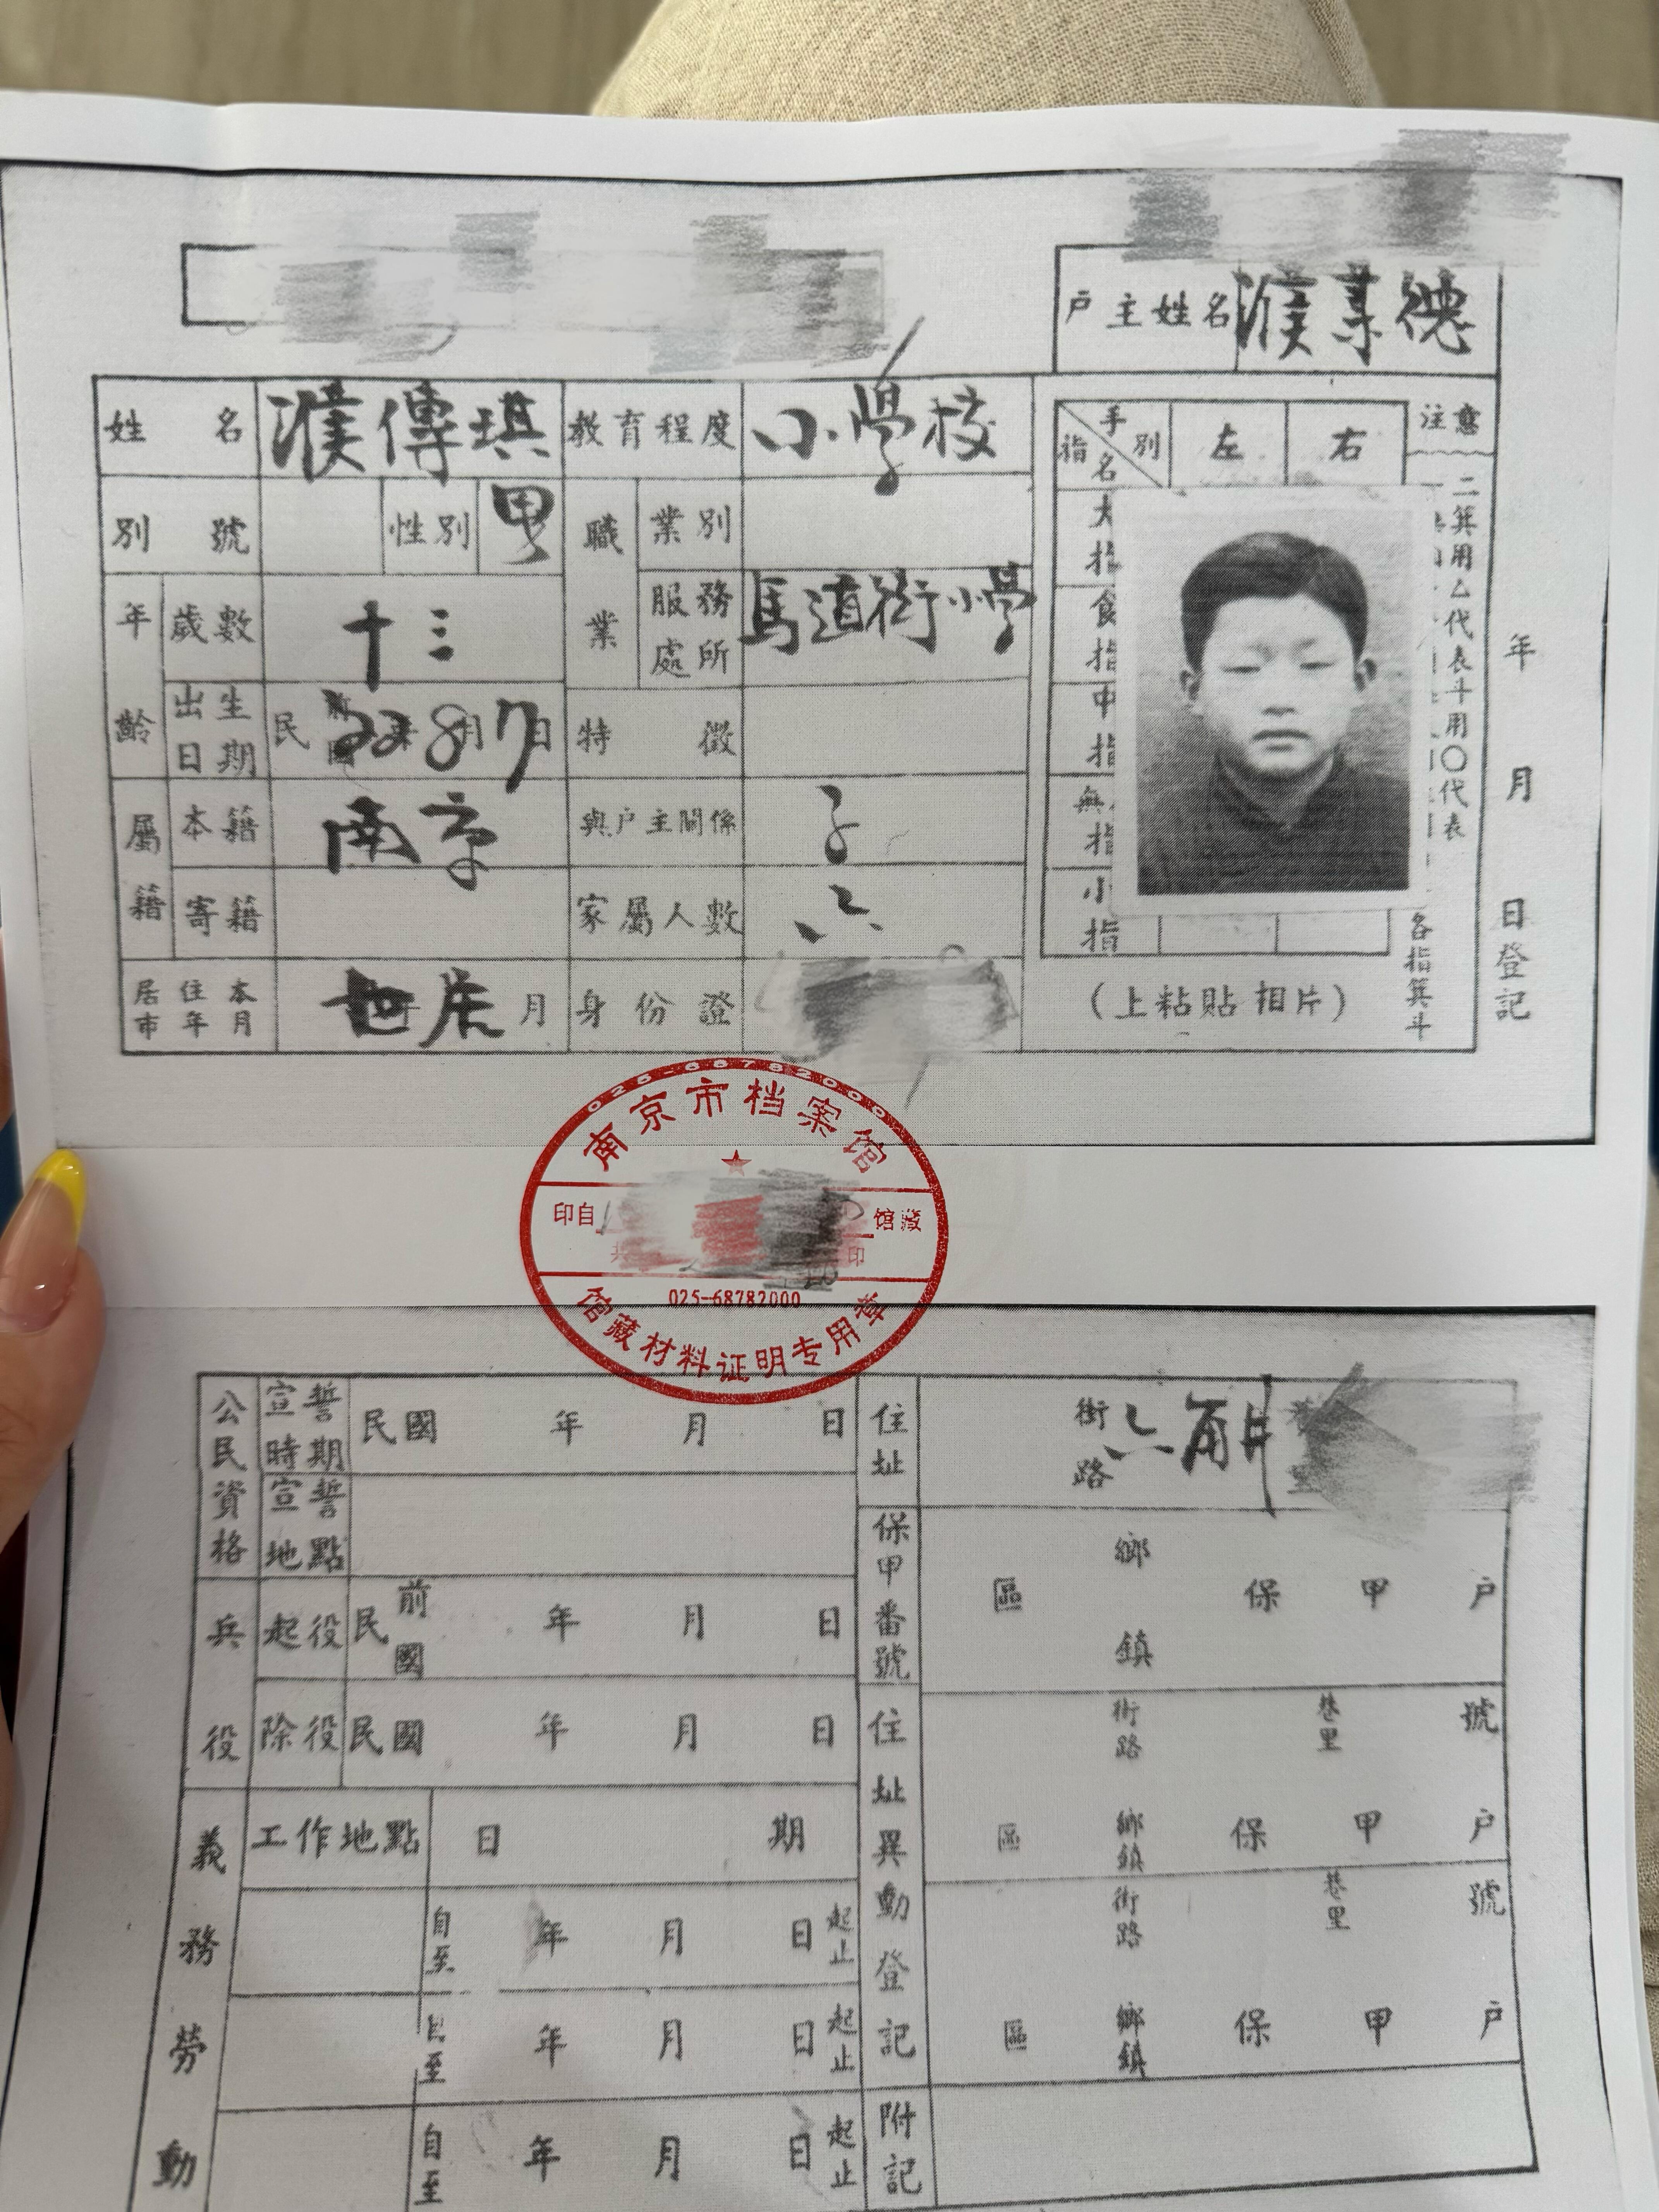 户主姓名 濮業德
姓名 濮傳琪 教育程度 小學校
別號 性別 男 職業 業別
年齡 歲數 十三 服務處所 馬道街小學
出生日期 民 22 8月7日 特徵
屬籍 本籍 南京 與户主關係 子
寄籍 家屬人數 六
居住本市年月 世居 月 身份證
手別 指名 左 右
大指
食指
中指
無 指
小指
(上粘貼相片)
注意
二箕用乙代表斗用〇代表
各指箕斗
年 月 日登記
025-68782000
南京市档案馆
印自 馆藏
共 印
025-68782000
馆藏材料证明专用章
公民資格 宣誓時期 民國 年 月 日 住址 街路 六角井
宣誓地點
保甲番號 區 鄉鎮 保 甲 户
兵役 起役 民前國 年 月 日
除役 民國 年 月 日 住址異動登記 街路 巷里 號
義務勞動 工作地點 日期 區 鄉鎮 保 甲 户
自至 年 月 日 起止 街路 巷里 號
自至 年 月 日 起止 區 鄉鎮 保 甲 户
自至 年 月 日 起止 附記